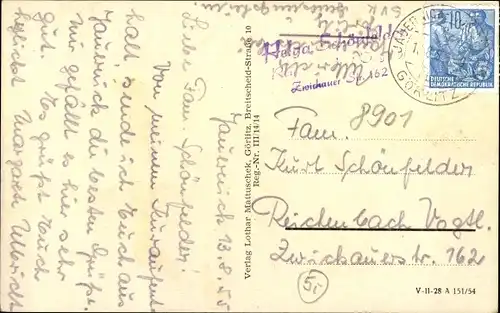 Jauernick 13.8.55
Liebe Fam. Schönfelder!
Von meinem Kuraufent-
halt, sende ich Euch aus
Jauernick die besten Grüße.
Mir gefällt es hier sehr
gut. Es grüßt Euch
herzlichst Margarete Ulbricht
Verlag Lothar Mattuschek, Görlitz, Breitscheid-Straße 10
Reg.-Nr. III/14/14
Helga Schönfelder
Zwickauer Str. 162
GÖRLITZ
10
DEUTSCHE
DEMOKRATISCHE REPUBLIK
Fam. 8901
Kurt Schönfelder
Reichenbach Vogtl.
Zwickauerstr. 162
V-11-28 A 151/54